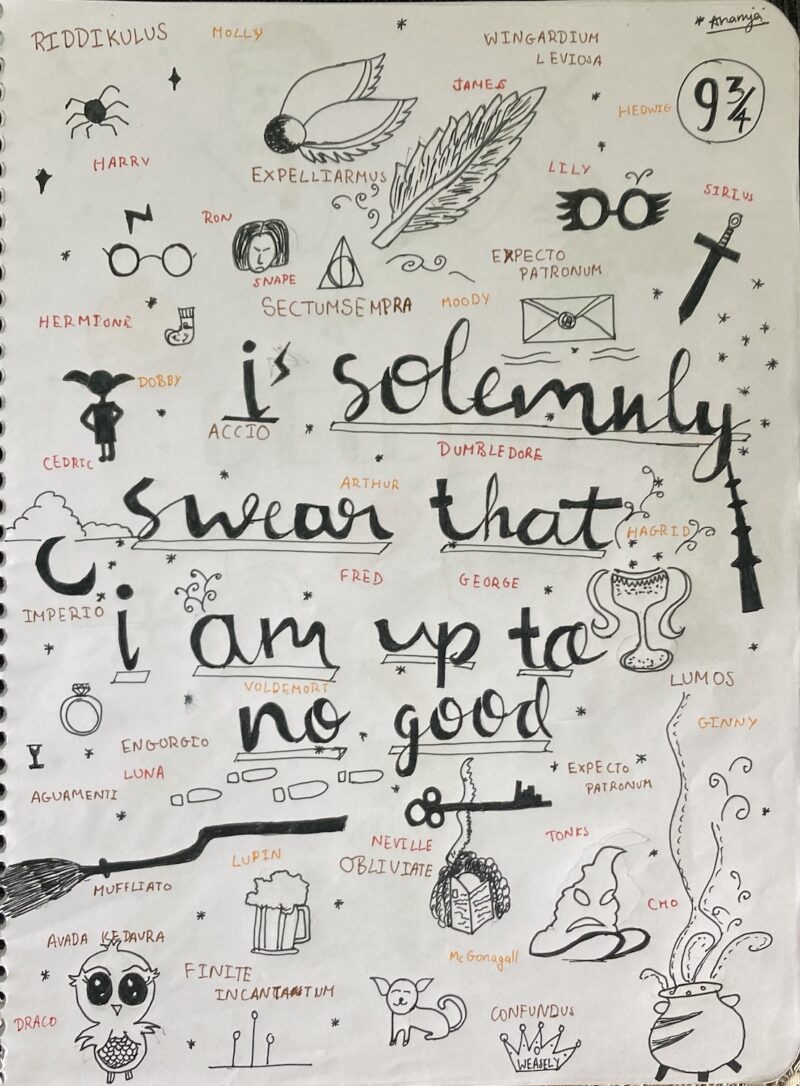 * Ananya
RIDDIKULUS
MOLLY
WINGARDIUM
LEVIOSA
JAMES
HEDWIG
9 3/4
HARRY
EXPELLIARMUS
LILY
SIRIUS
RON
SNAPE
EXPECTO
PATRONUM
SECTUMSEMPRA
MOODY
HERMIONE
DOBBY
i solemnly
ACCIO
DUMBLEDORE
CEDRIC
ARTHUR
swear that
HAGRID
FRED
GEORGE
IMPERIO
i am up to
LUMOS
VOLDEMORT
no good
GINNY
ENGORGIO
LUNA
EXPECTO
PATRONUM
AGUAMENTI
NEVILLE
TONKS
OBLIVIATE
LUPIN
MUFFLIATO
CHO
AVADA KEDAVRA
McGonagall
FINITE
INCANTANTUM
DRACO
CONFUNDUS
WEASELY